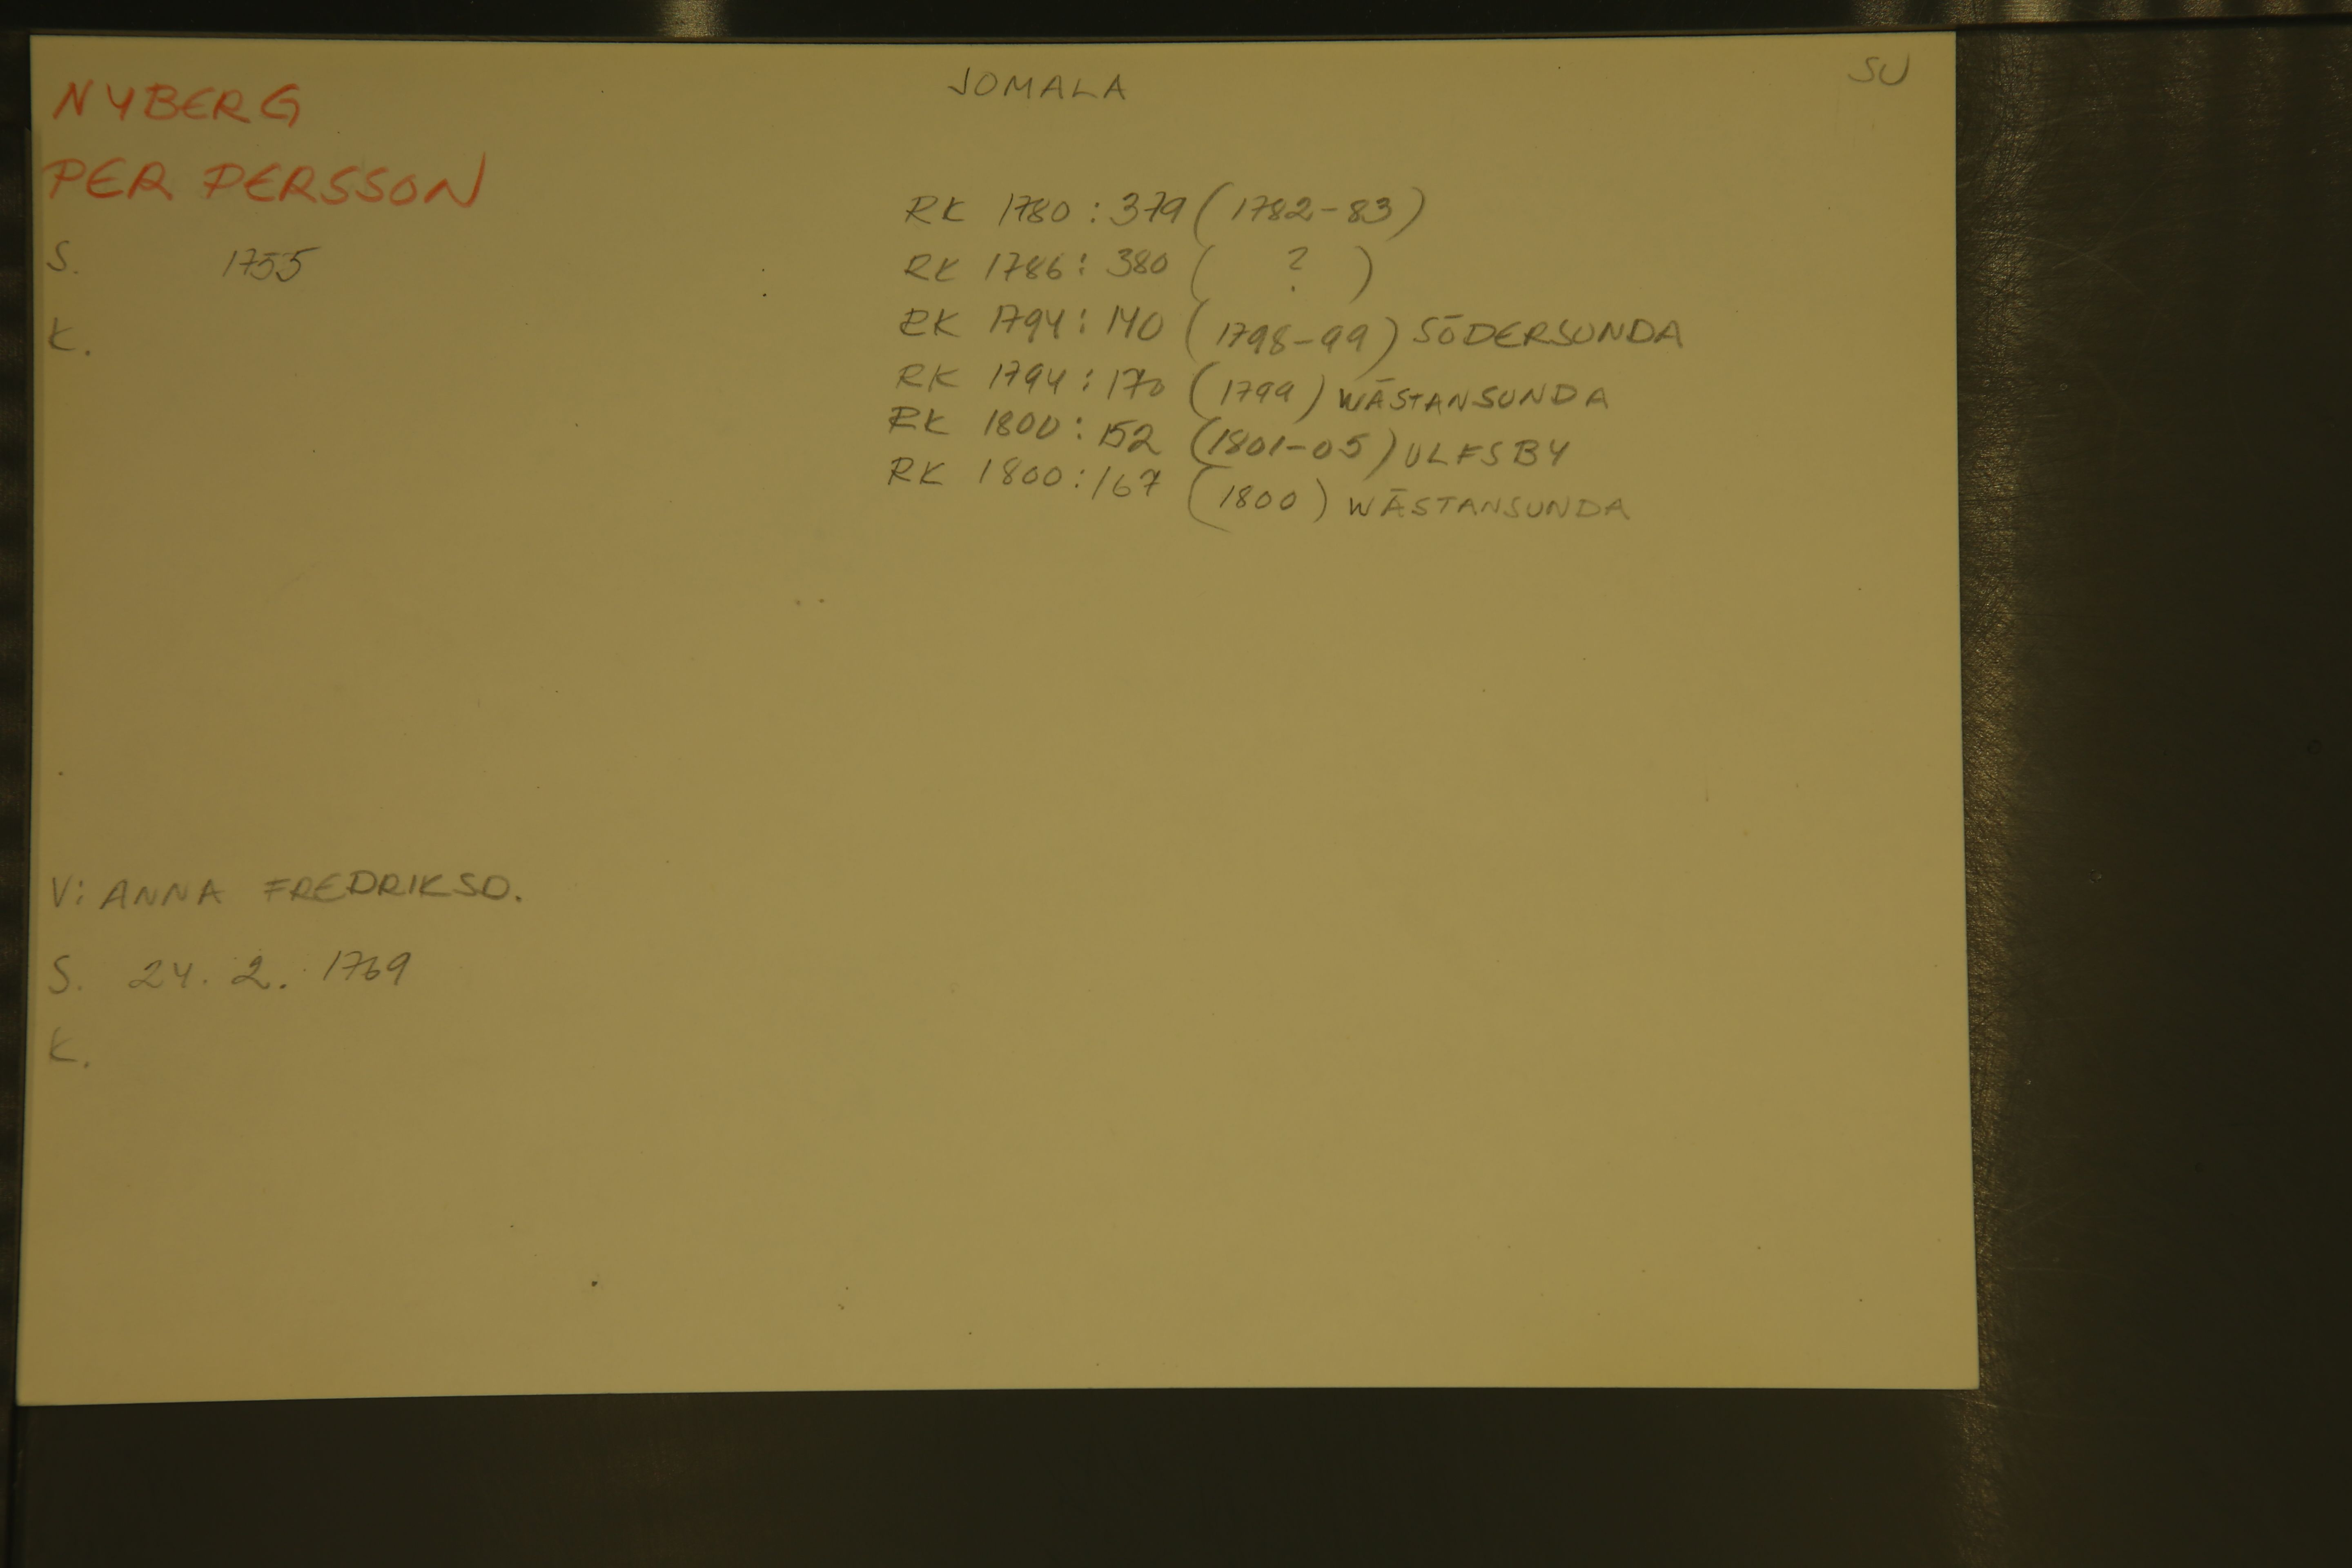 NYBERG
PER PERSSON
S. 1755
K.
JOMALA
SU
RK 1780 : 379 (1782-83)
RK 1786 : 380 ( ? )
RK 1794 : 140 (1798-99) SÖDERSUNDA
RK 1794 : 170 (1799) WÄSTANSUNDA
RK 1800 : 152 (1801-05) ULFSBY
RK 1800 : 167 (1800) WÄSTANSUNDA
V: ANNA FREDRIKSD.
S. 24. 2. 1769
K.